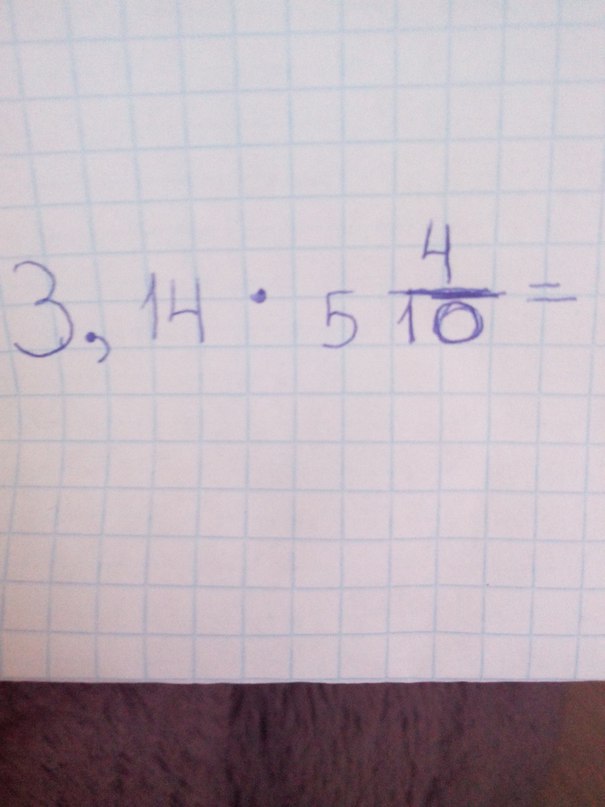 3,14 · 5 4/10 =